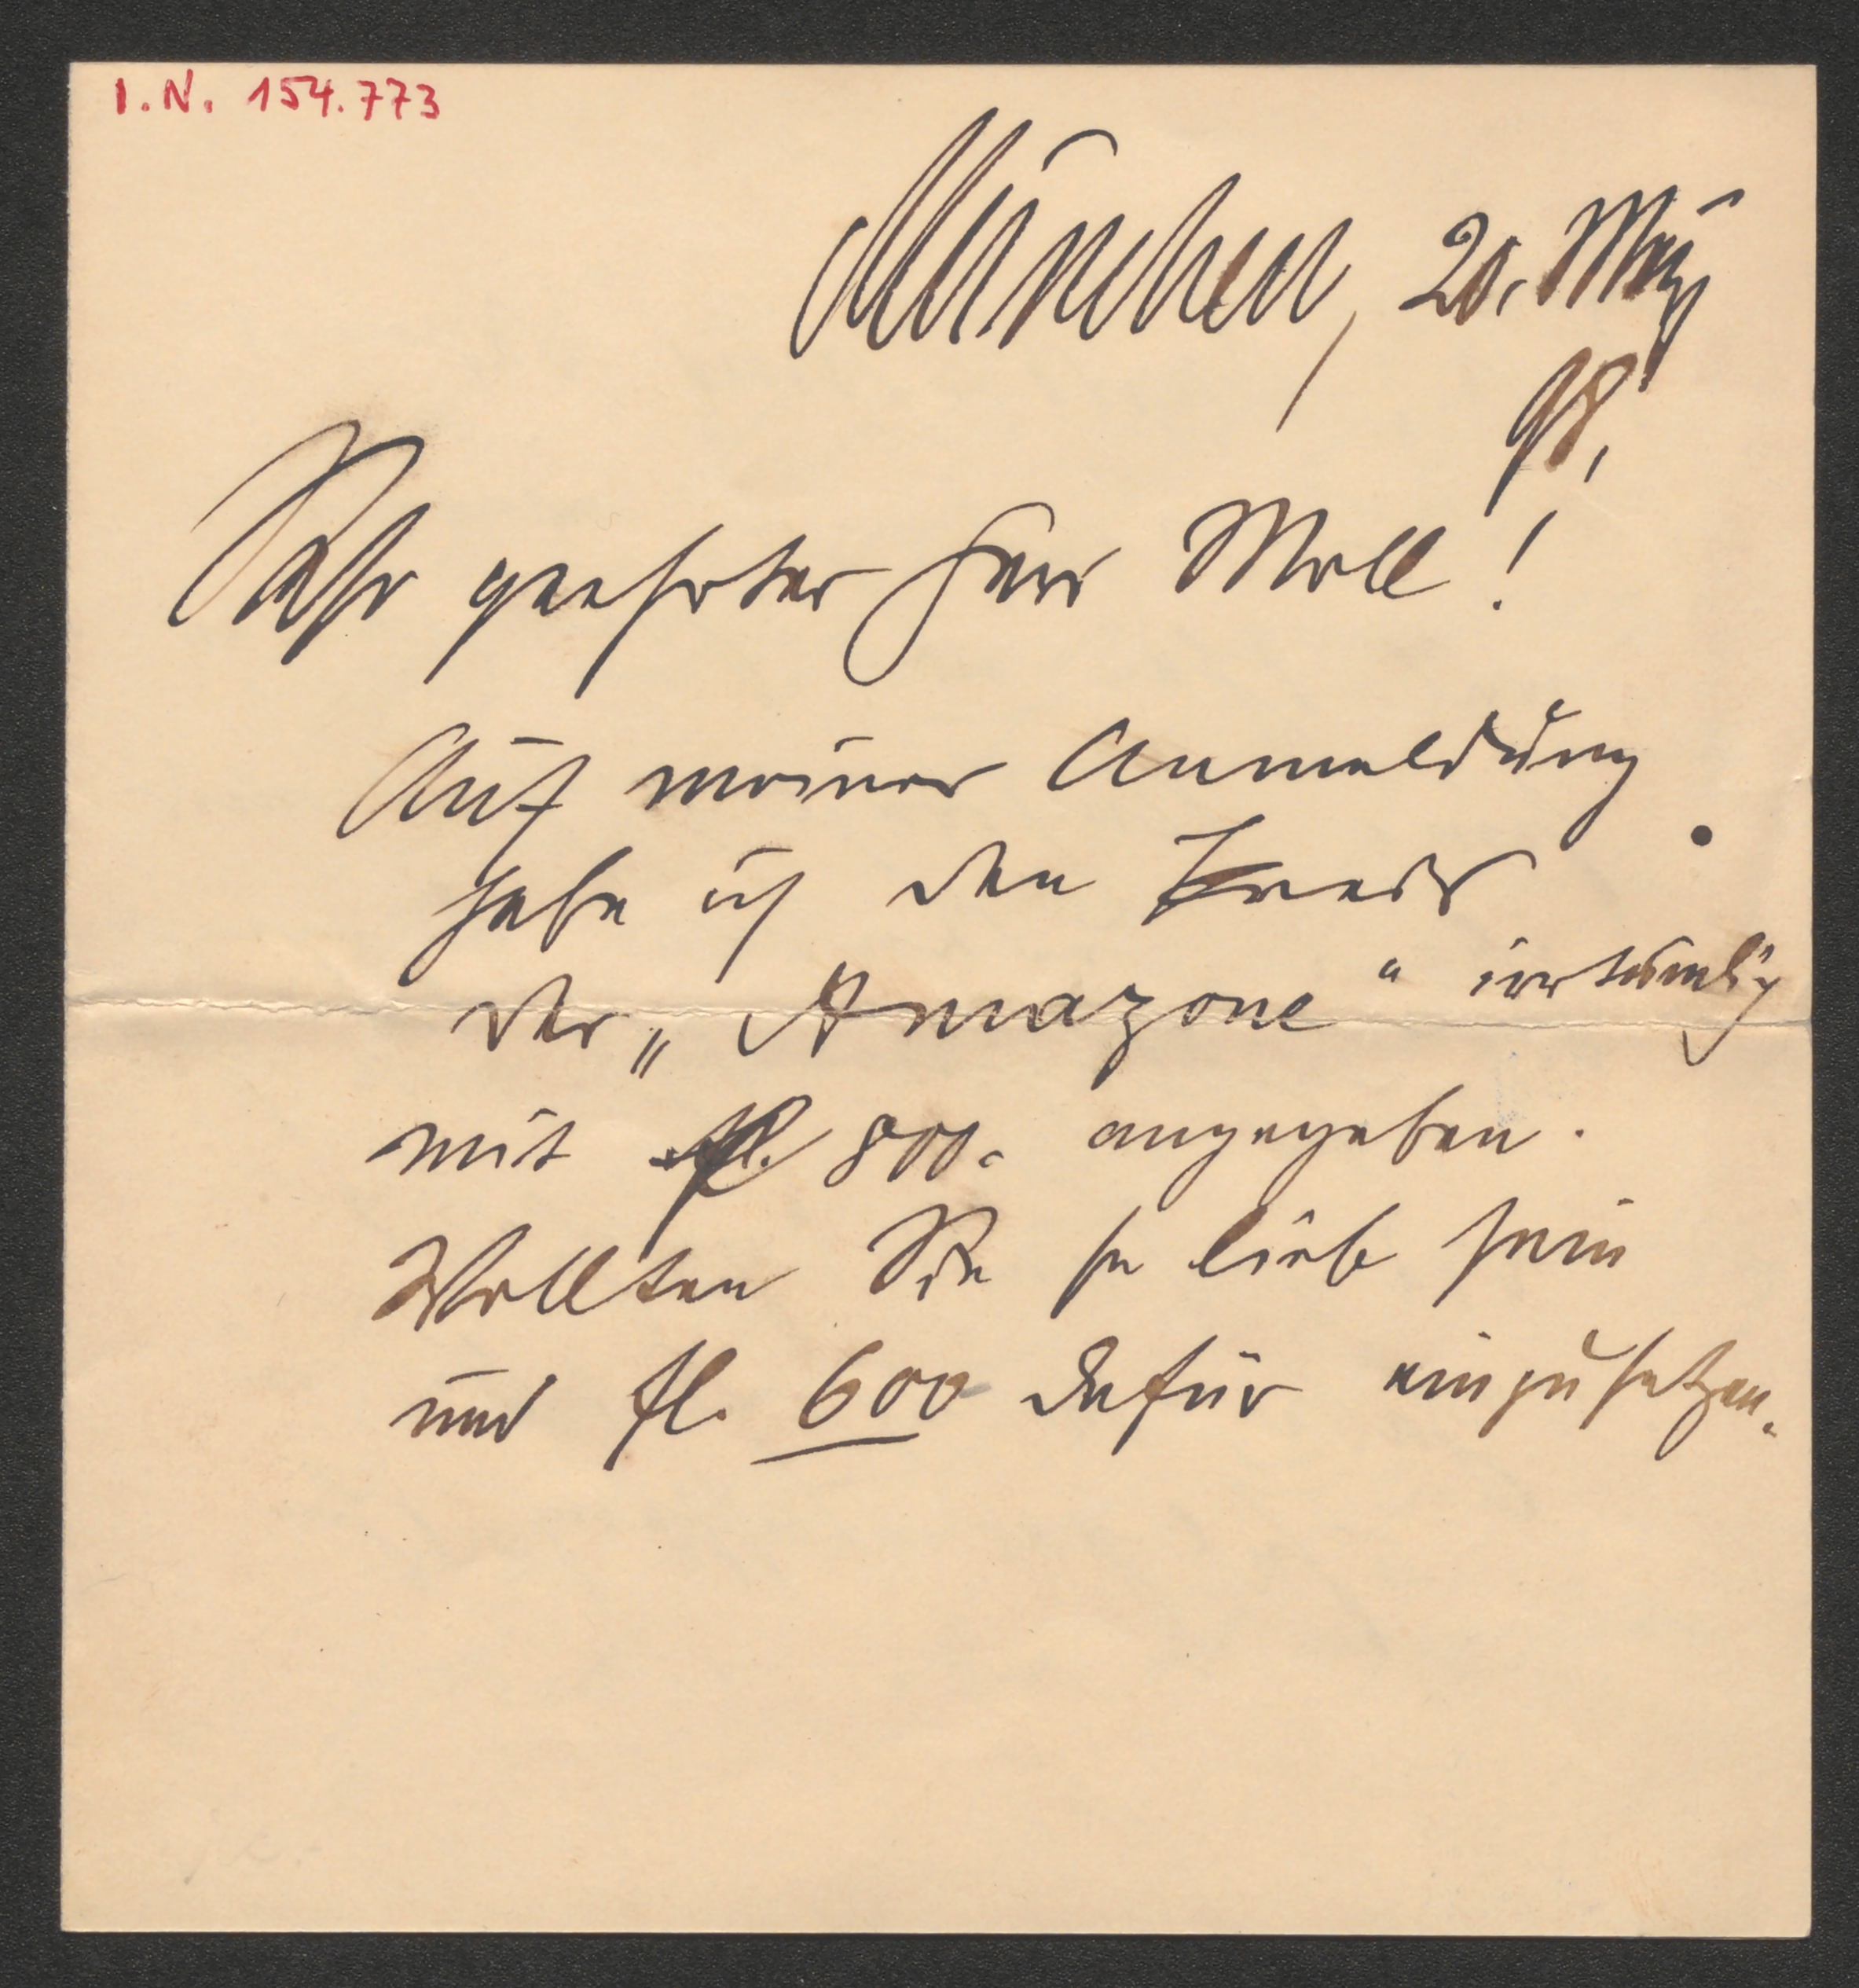 I.N. 154.773
München, 20. März
98.
Sehr geehrter Herr Moll!
Auf meiner Anmeldung
habe ich den Preis
der „Amazone“ irrtümlich
mit fl. 800. angegeben.
Wollten Sie so lieb sein
und fl. 600 dafür einzusetzen.